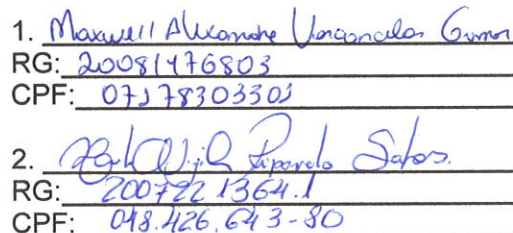 1. Maxwell Alexandre Vasconcelos Gomes
RG: 20081476803
CPF: 07178303301
2. Santos.
RG: 200722 1364.1
CPF: 048.426.643-80